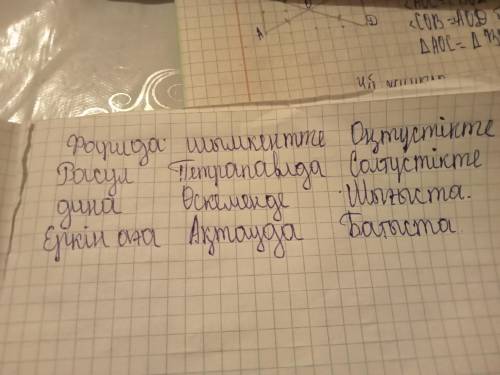 A D
<СОВ=АОД
ΔAOC=Δ
Фарида шымкентте Оңтүстікте
Расул Петрапавлда Солтүстікте
дина Өскеменде Шығыста.
Еркін аға Ақтауда Батыста.